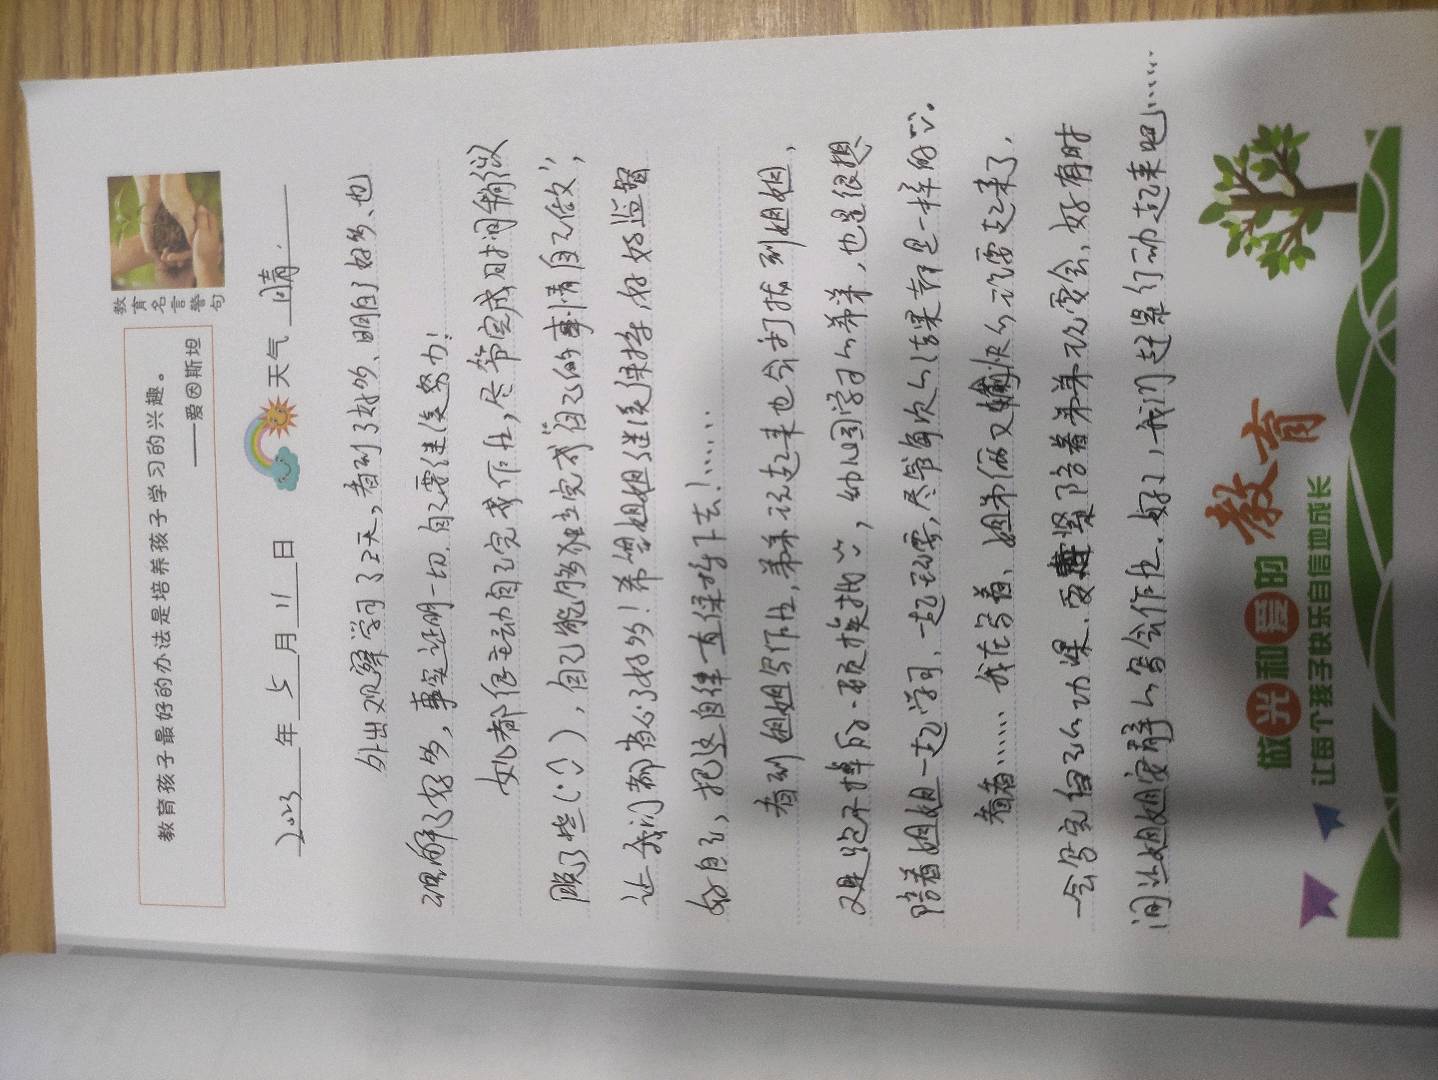 教育孩子最好的办法是培养孩子学习的兴趣。
——爱因斯坦
教育名言警句
2023年5月11日 天气 晴.
外出观察学习了2天,看到了好多、明白了好多、也
理解了好多,事实证明一切.自己要继续努力!
女儿都很主动自己完成作业,尽管完成时间稍微
晚了些(:),自己能够独立完成“自己的事情自己做”,
让我们都省心了好多!希望姐姐继续保持,好好监督
好自己,把这自律一直保持下去!……
看到姐姐写作业,弟弟说起来也会打扰到姐姐,
又是跑不掉的一顿挨批,幼儿园学习的弟弟,也是很想
陪着姐姐一起学习、一起玩耍,尽管每次的结果都是一样的.
看着……我在写着、姐弟俩又愉快的玩耍起来了,
一会写完自己的功课.要赶紧陪着弟弟玩耍会,好有时
间让姐姐安静的写会作业.好了,我们赶紧行动起来吧……
做光和爱的教育
让每个孩子快乐自信地成长